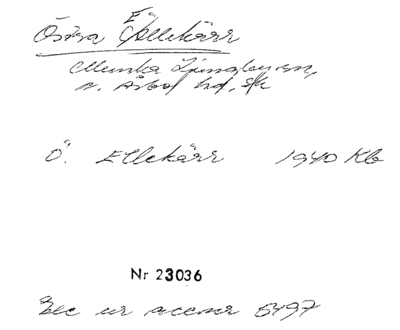 Östra Ellekärr
Munka Ljungby sn,
n. Åsbo hd, Sk
Ö. Ellekärr 1940 Kb
Nr 23036
Exc ur accnr 5497